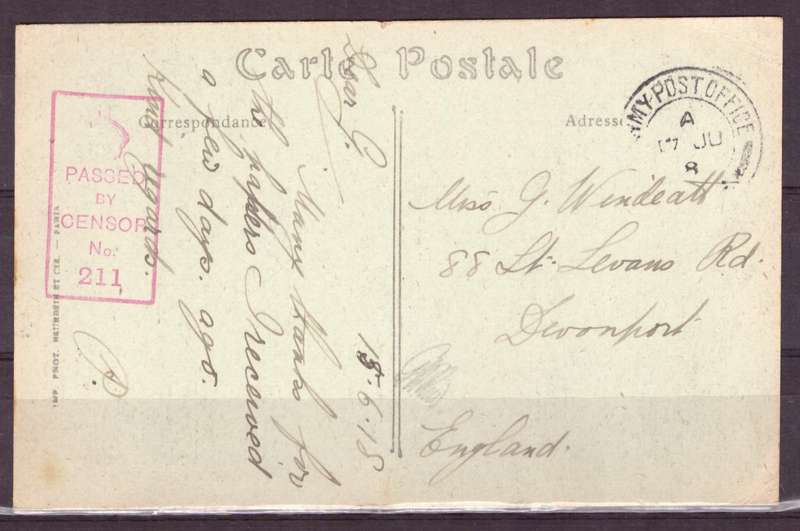 Carte Postale
Correspondance
Adresse
ARMY POST OFFICE
A
17 JU
8
PASSED
BY
CENSOR
No.
211
Dear G.
Many thanks for
the papers I received
a few days. ago.
Kind regards.
P.
15.6.18
Miss G. Windeatt
88 St. Levans Rd.
Devonport
England.
IMP. PHOT. NEURDEIN ET CIE. — PARIS